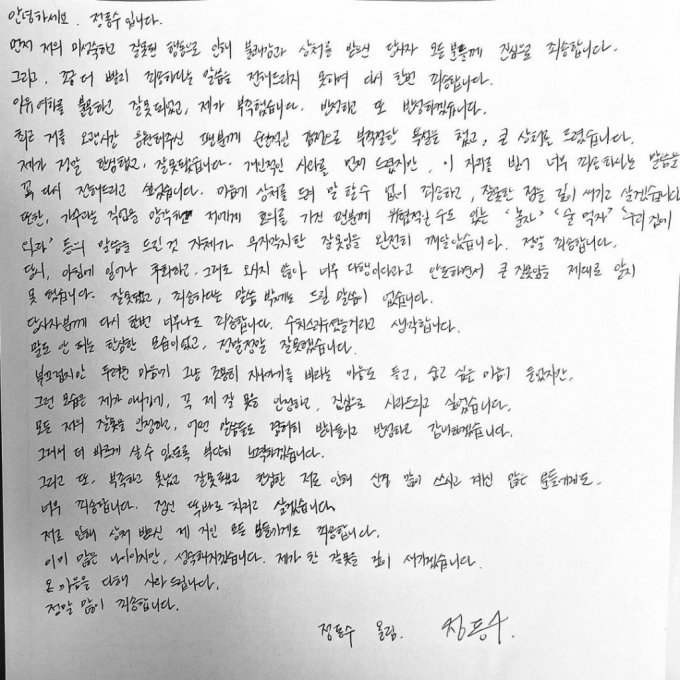 안녕하세요. 정통수입니다.
먼저 저의 미성숙하고 잘못된 행동으로 인해 불쾌감과 상처를 받으신 당사자 모든 분들께 진심으로 죄송합니다.
그리고, 좀 더 빨리 죄송하다는 말씀을 전해드리지 못하여 다시 한번 죄송합니다.
이유 여하를 불문하고 잘못되었고, 제가 부족했습니다. 반성하고 또 반성하겠습니다.
최근 저를 오랜시간 응원해주신 팬분께 순간적인 감정으로 부적절한 톡실을 했고, 큰 상처를 드렸습니다.
제가 정말 한심했고, 잘못했습니다. 개인적인 사과를 먼저 드렸지만, 이 자리를 빌어 너무 죄송하다는 말씀을
꼭 다시 전해드리고 싶었습니다. 마음에 상처를 드려 말할 수 없이 죄송하고, 잘못한 점을 깊이 새기고 살겠습니다
또한, 가수라는 직업을 망각한 저에게 호의를 가진 팬분께 위협적일 수도 있는 '놀자' '술 먹자' '우리 집에
와라' 등의 말씀을 드린 것 자체가 무지각한 잘못임을 완전히 깨달았습니다. 정말 죄송합니다.
당시, 아침에 일어나 후회하고, 그래도 오시지 않아 너무 다행이다라고 안도하면서 큰 잘못임을 제대로 알지
못 했습니다. 잘못했고, 죄송하다는 말씀 밖에는 드릴 말씀이 없습니다.
당사자분께 다시 한번 너무나도 죄송합니다. 수치스러우셨을거라고 생각합니다.
말도 안 되는 한심한 모습이었고, 정말정말 잘못했습니다.
부끄럽지만 두려운 마음에 그냥 조용히 지나가기를 바라는 마음도 들고, 숨고 싶은 마음이 들었지만,
그런 모습은 제가 아니기에, 꼭 제 잘못을 인정하고, 진심으로 사과드리고 싶었습니다.
모든 저의 잘못을 인정하고, 어떤 말씀들도 겸허히 받아들이고 반성하고 감내하겠습니다.
그래서 더 바르게 살 수 있도록 부단히 노력하겠습니다.
그리고 또, 부족하고 못났고 잘못했고 한심한 저로 인해 신경 많이 쓰시고 계신 많은 분들에게도.
너무 죄송합니다. 정신 똑바로 차리고 살겠습니다.
저로 인해 상처 받으신 제 지인 모든 분들께도 죄송합니다.
이미 많은 나이이지만, 성숙해지겠습니다. 제가 한 잘못을 깊이 새기겠습니다.
온 마음을 다해 사과 드립니다.
정말 많이 죄송합니다.
정통수 올림.